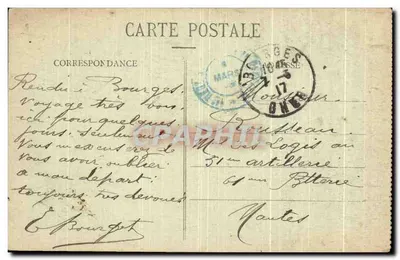 CARTE POSTALE
CORRESPONDANCE
Rendu à Bourges
Voyage très bon
ici pour quelques
jours seulement
Vous m'excuserez de
vous avoir oublier
a mon départ
toujours très devoués
E Bourget
BOURGES
CHER
17
MARS
Monsieur
Rousseau
Mal des Logis au
51me artillerie
61me Btterie
Nantes